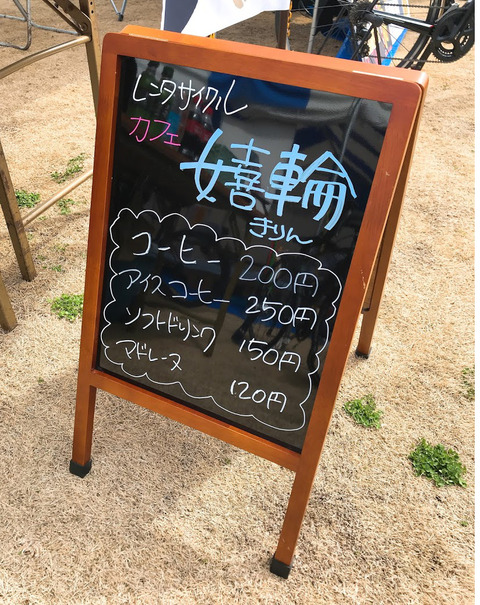 レンタサイクル
カフェ
嬉輪
きりん
コーヒー 200円
アイスコーヒー 250円
ソフトドリンク 150円
マドレーヌ 120円